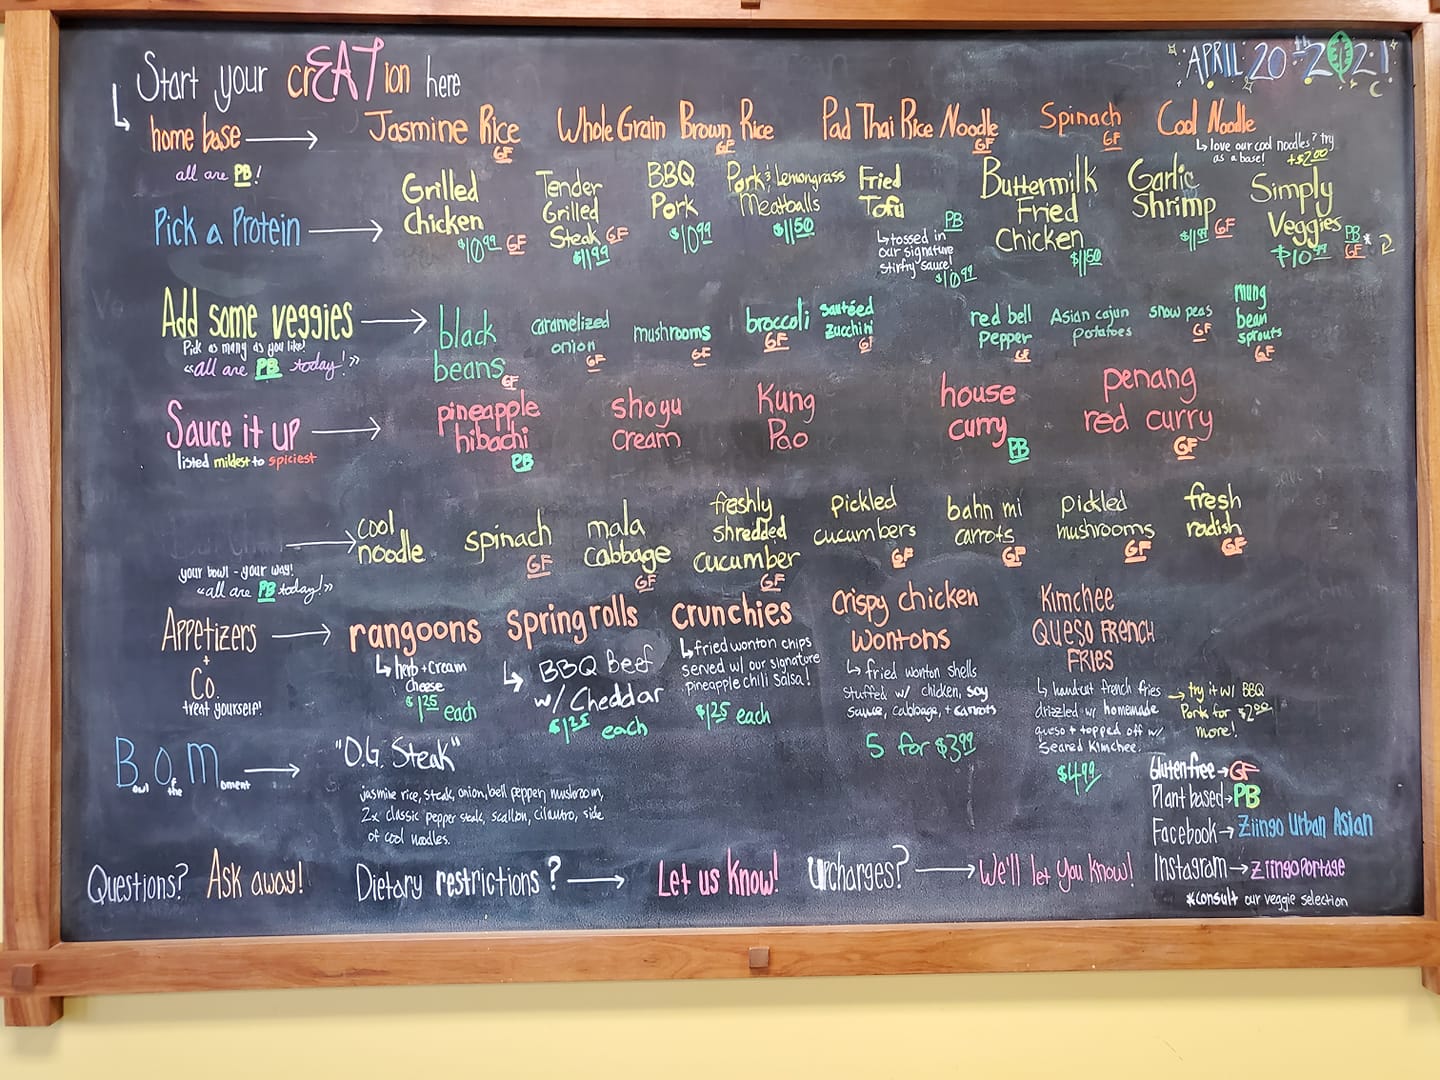 Start your crEATion here
APRIL 20th 2021
home base
all are PB!
Jasmine Rice GF
Whole Grain Brown Rice GF
Pad Thai Rice Noodle GF
Spinach GF
Cool Noodle
love our cool noodles? try
as a base! +$2.00
Pick a Protein
Grilled
Chicken
$10.99 GF
Tender
Grilled
Steak GF
$11.99
BBQ
Pork
$10.99
Pork & Lemongrass
Meatballs
$11.50
Fried
Tofu
PB
tossed in
our signature
stirfry sauce!
$10.99
Buttermilk
Fried
Chicken
$11.50
Garlic
Shrimp
$11.99 GF
Simply
Veggies
$10.99
PB
GF
*
Add some veggies
Pick as many as you like!
"all are PB today!"
black
beans
GF
caramelized
onion
GF
mushrooms
GF
broccoli
GF
sautéed
zucchini
GF
red bell
pepper
GF
Asian cajun
potatoes
snow peas
GF
mung
bean
sprouts
GF
Sauce it up
listed mildest to spiciest
pineapple
hibachi
PB
shoyu
cream
Kung
Pao
house
curry
PB
penang
red curry
GF
your bowl - your way!
"all are PB today!"
cool
noodle
spinach
GF
mala
cabbage
GF
freshly
shredded
cucumber
GF
pickled
cucumbers
GF
bahn mi
carrots
GF
pickled
mushrooms
GF
fresh
radish
GF
Appetizers
+
Co.
treat yourself!
rangoons
herb + cream
cheese
$1.25 each
Spring rolls
BBQ Beef
w/ Cheddar
$1.25 each
crunchies
fried wonton chips
served w/ our signature
pineapple chili salsa!
$1.25 each
crispy chicken
wontons
fried wonton shells
stuffed w/ chicken, soy
sauce, cabbage, + carrots
5 for $3.99
Kimchee
Queso French
Fries
handcut french fries
drizzled w/ homemade
queso + topped off w/
seared Kimchee.
$4.99
try it w/ BBQ
Pork for $2.00
more!
B.O.M
owl of the oment
"O.G. Steak"
jasmine rice, steak, onion, bell pepper, mushroom,
2x classic pepper steak, scallion, cilantro, side
of cool noodles.
Gluten free GF
Plant based PB
Facebook Ziingo Urban Asian
Instagram ZiingoPortage
*consult our veggie selection
Questions? Ask away!
Dietary restrictions? Let us Know!
Upcharges? We'll let you Know!